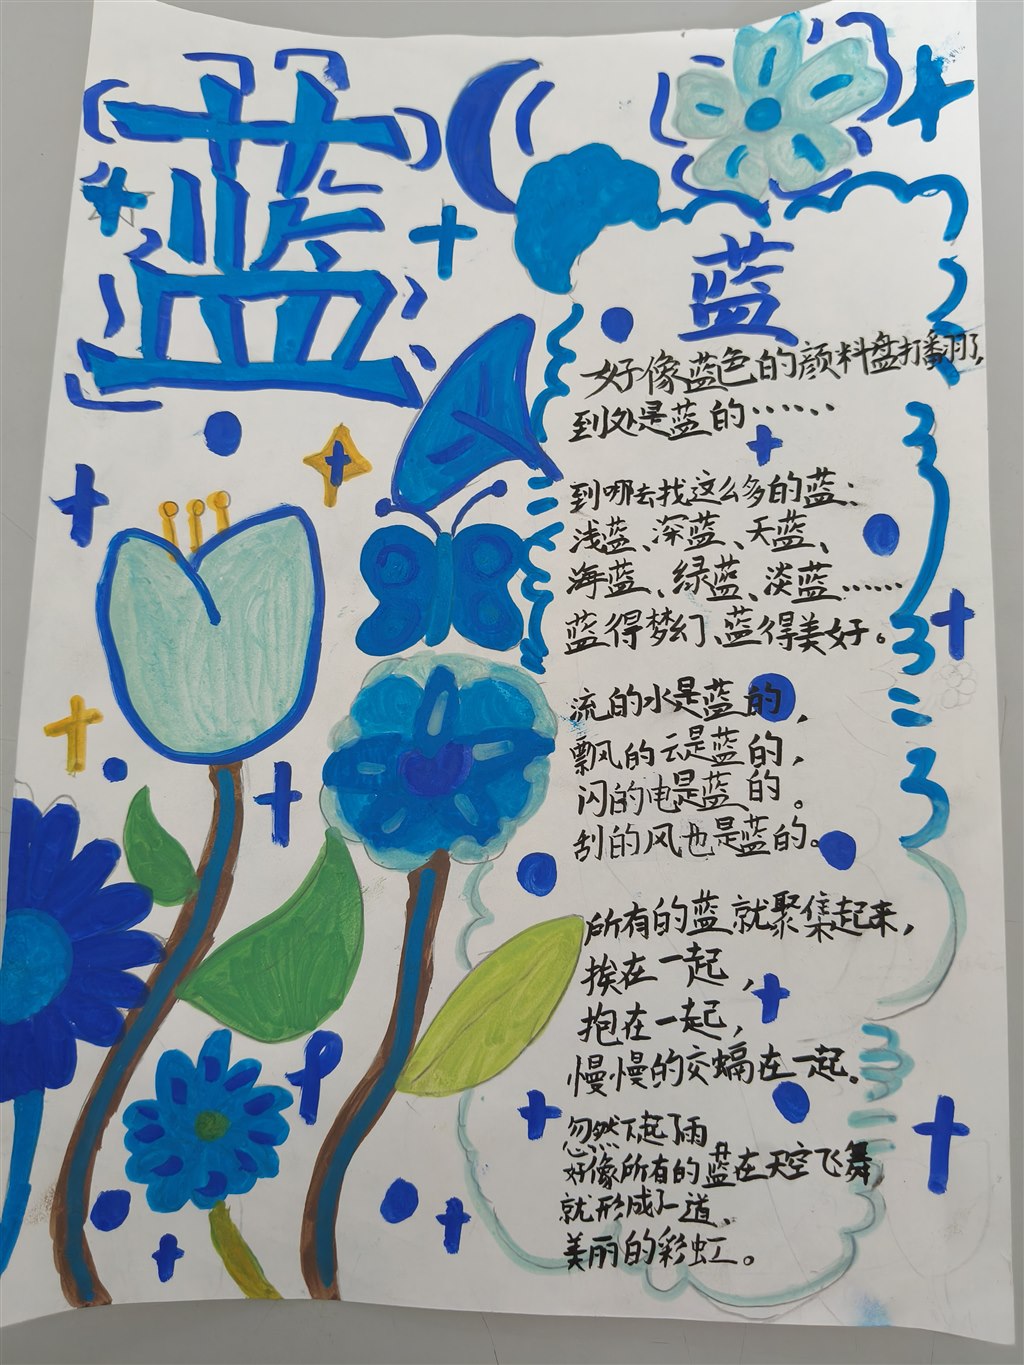 蓝
蓝
好像蓝色的颜料盘打翻了,
到处是蓝的……
到哪去找这么多的蓝:
浅蓝、深蓝、天蓝、
海蓝、绿蓝、淡蓝……
蓝得梦幻、蓝得美好。
流的水是蓝的,
飘的云是蓝的,
闪的电是蓝的。
刮的风也是蓝的。
所有的蓝就聚集起来,
挨在一起,
抱在一起,
慢慢的交蝙在一起。
忽然下起了雨
好像所有的蓝在天空飞舞
就形成了一道、
美丽的彩虹。